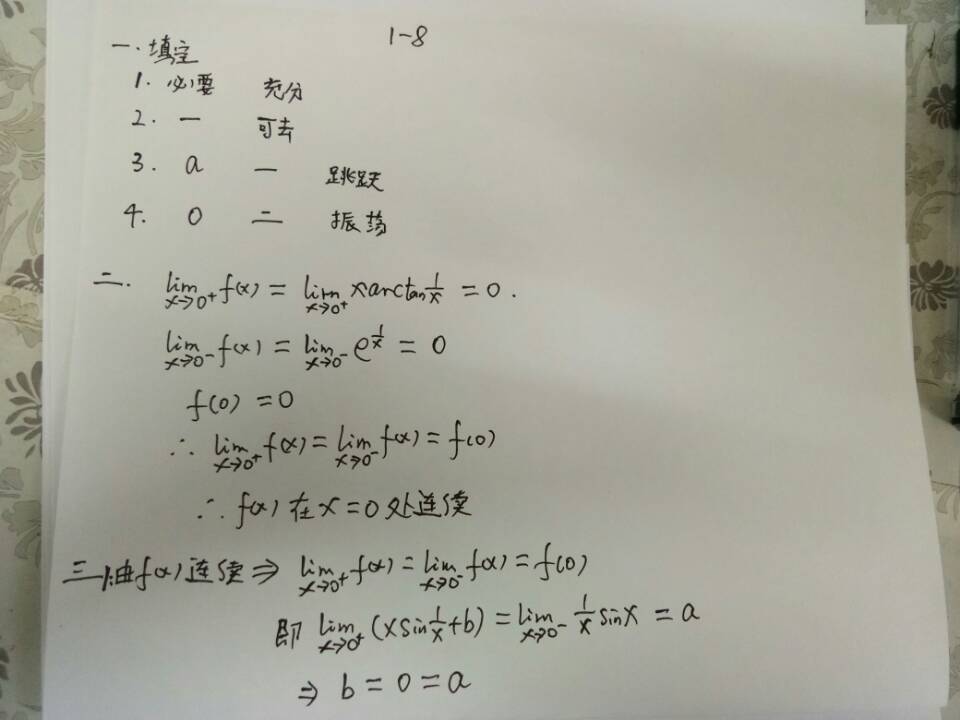 1-8
一.填空
1. 必要 充分
2. 一 可去
3. a 一 跳跃
4. 0 二 振荡
二. lim x→0⁺ f(x) = lim x→0⁺ xarctan 1/x = 0.
lim x→0⁻ f(x) = lim x→0⁻ e^(1/x) = 0
f(0) = 0
∴ lim x→0⁺ f(x) = lim x→0⁻ f(x) = f(0)
∴ f(x) 在 x=0 处连续
三.1.由f(x)连续 ⇒ lim x→0⁺ f(x) = lim x→0⁻ f(x) = f(0)
即 lim x→0⁺ (xsin 1/x + b) = lim x→0⁻ 1/x sinx = a
⇒ b = 0 = a